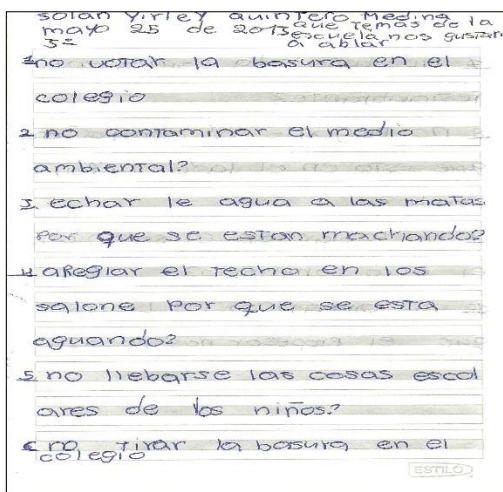 solan yirley quintero Medina
mayo 25 de 2013 que temas de la
5º escuela nos gustan
a ablar
1 no votar la basura en el
colegio
2 no contaminar el medio
ambiental?
3. echar le agua a las matas
por que se estan machando?
4 aReglar el techo en los
salone por que se esta
aguando?
5 no llebarse las cosas escol
ares de los niños?
6 no tirar la basura en el
colegio
ESTILO